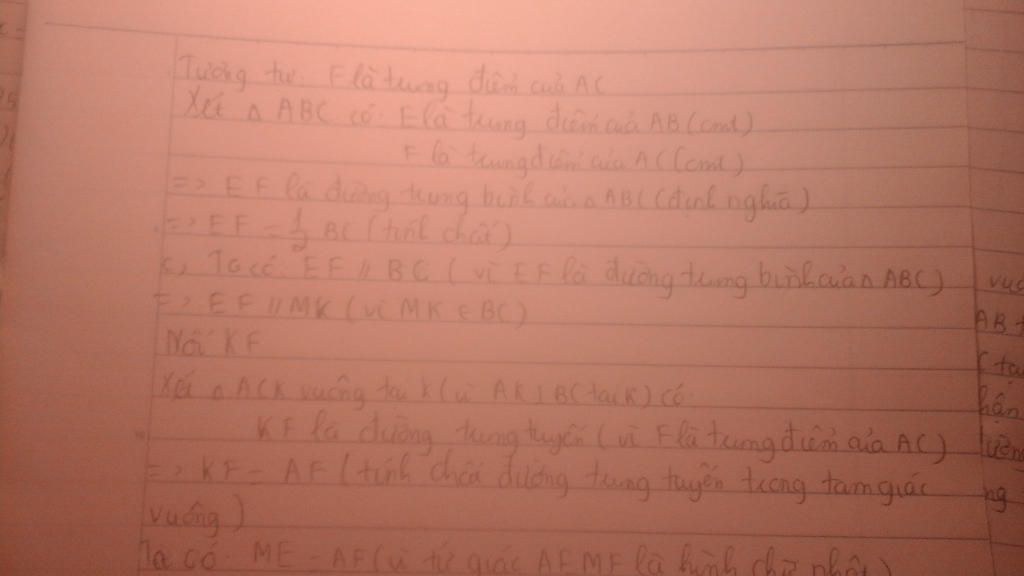 Tương tự: F là trung điểm của AC
Xét Δ ABC có: E là trung điểm của AB (cmt)
F là trung điểm của AC (cmt)
=> EF là đường trung bình của Δ ABC (định nghĩa)
=> EF = 1/2 BC (tính chất)
c, Ta có: EF // BC (vì EF là đường trung bình của Δ ABC)
=> EF // MK (vì MK ∈ BC)
Nối KF
Xét Δ ACK vuông tại K (vì AK ⊥ BC tại K) có:
KF là đường trung tuyến (vì F là trung điểm của AC)
=> KF = AF (tính chất đường trung tuyến trong tam giác
vuông)
Ta có: ME = AF (vì tứ giác AEMF là hình chữ nhật)